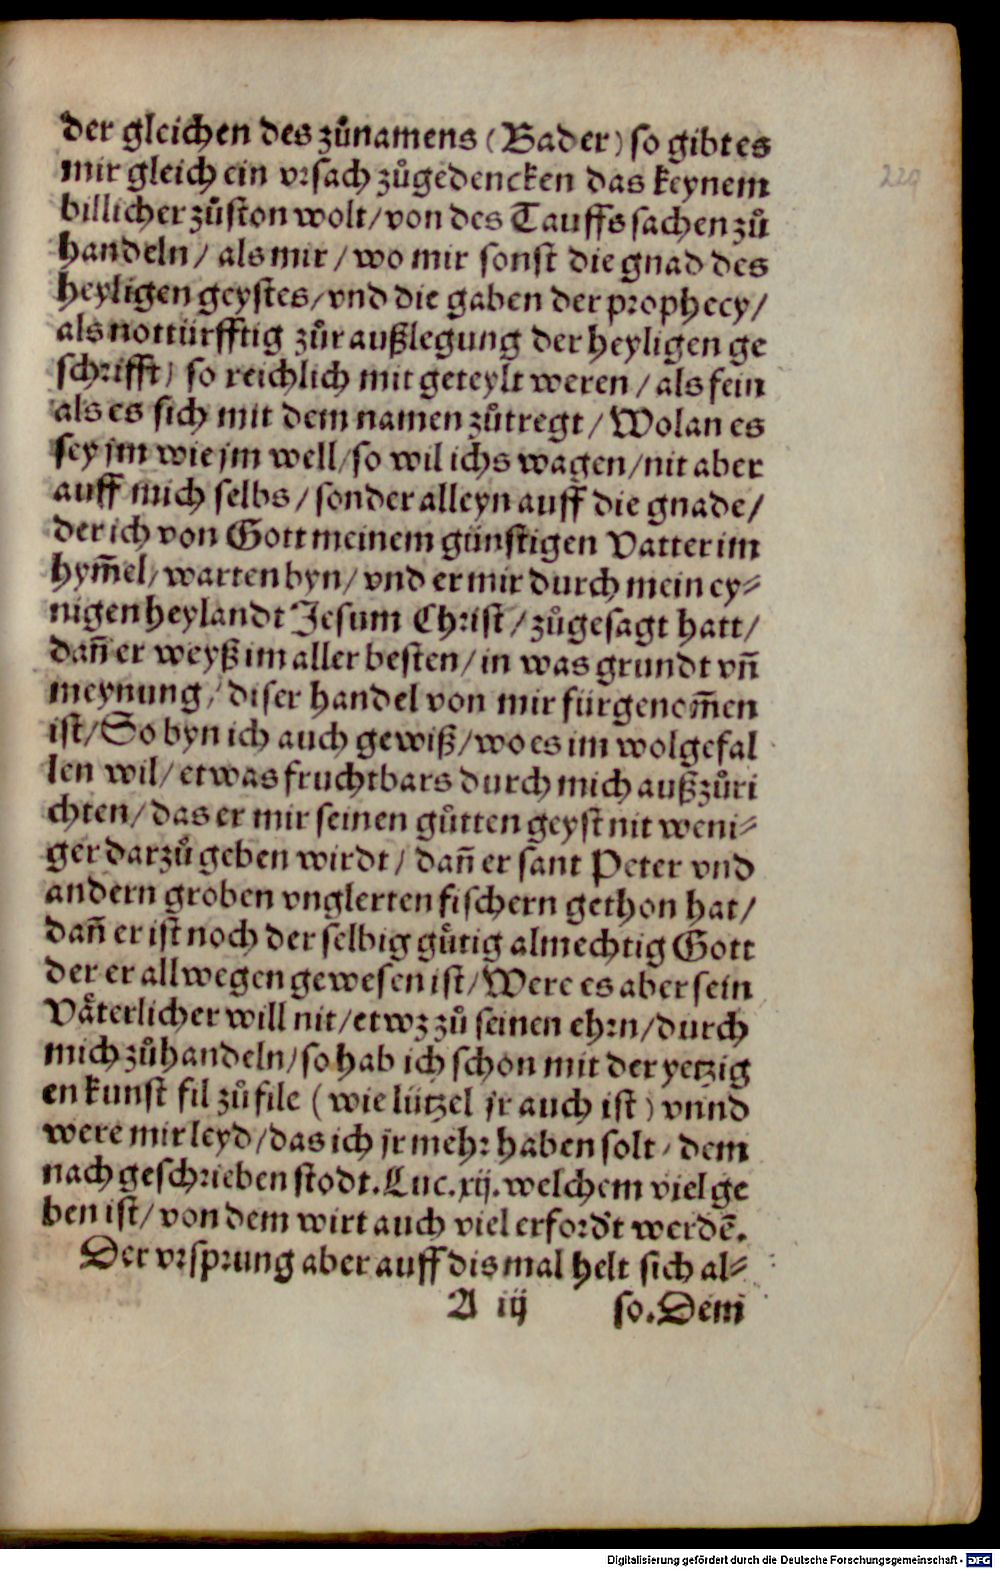 der gleichen des zůnamens (Bader) so gibt es
mir gleich ein vrsach zůgedencken das keynem
billicher zůston wolt/ von des Tauffs sachen zů
handeln/ als mir/ wo mir sonst die gnad des
heyligen geystes/ vnd die gaben der prophecy/
als nottürfftig zůr außlegung der heyligen ge
schrifft/ so reichlich mit geteylt weren/ als fein
als es sich mit dem namen zůtregt/ Wolan es
sey jm wie jm well/ so wil ichs wagen/ nit aber
auff mich selbs/ sonder alleyn auff die gnade/
der ich von Gott meinem günstigen Vatter im
hym̃el/ warten byn/ vnd er mir durch mein ey⸗
nigen heylandt Jesum Christ/ zůgesagt hatt/
dañ er weyß im aller besten/ in was grundt vñ
meynung/ diser handel von mir fürgenom̃en
ist/ So byn ich auch gewiß/ wo es im wolgefal
len wil/ etwas fruchtbars durch mich außzůri
chten/ das er mir seinen gůtten geyst nit weni⸗
ger darzů geben wirdt/ dañ er sant Peter vnd
andern groben vnglerten fischern gethon hat/
dañ er ist noch der selbig gůtig almechtig Gott
der er allwegen gewesen ist/ Were es aber sein
Vaͤterlicher will nit/ etwz zů seinen ehrn/ durch
mich zůhandeln/ so hab ich schon mit der yetzig
en kunst fil zů file (wie lützel jr auch ist) vnnd
were mir leyd/ das ich jr mehr haben solt/ dem
nach geschrieben stodt. Luc. xij. welchem viel ge
ben ist/ von dem wirt auch viel erford't werdẽ.
Der vrsprung aber auff dis mal helt sich al⸗
A iij so. Dem
229
Digitalisierung gefördert durch die Deutsche Forschungsgemeinschaft - DFG